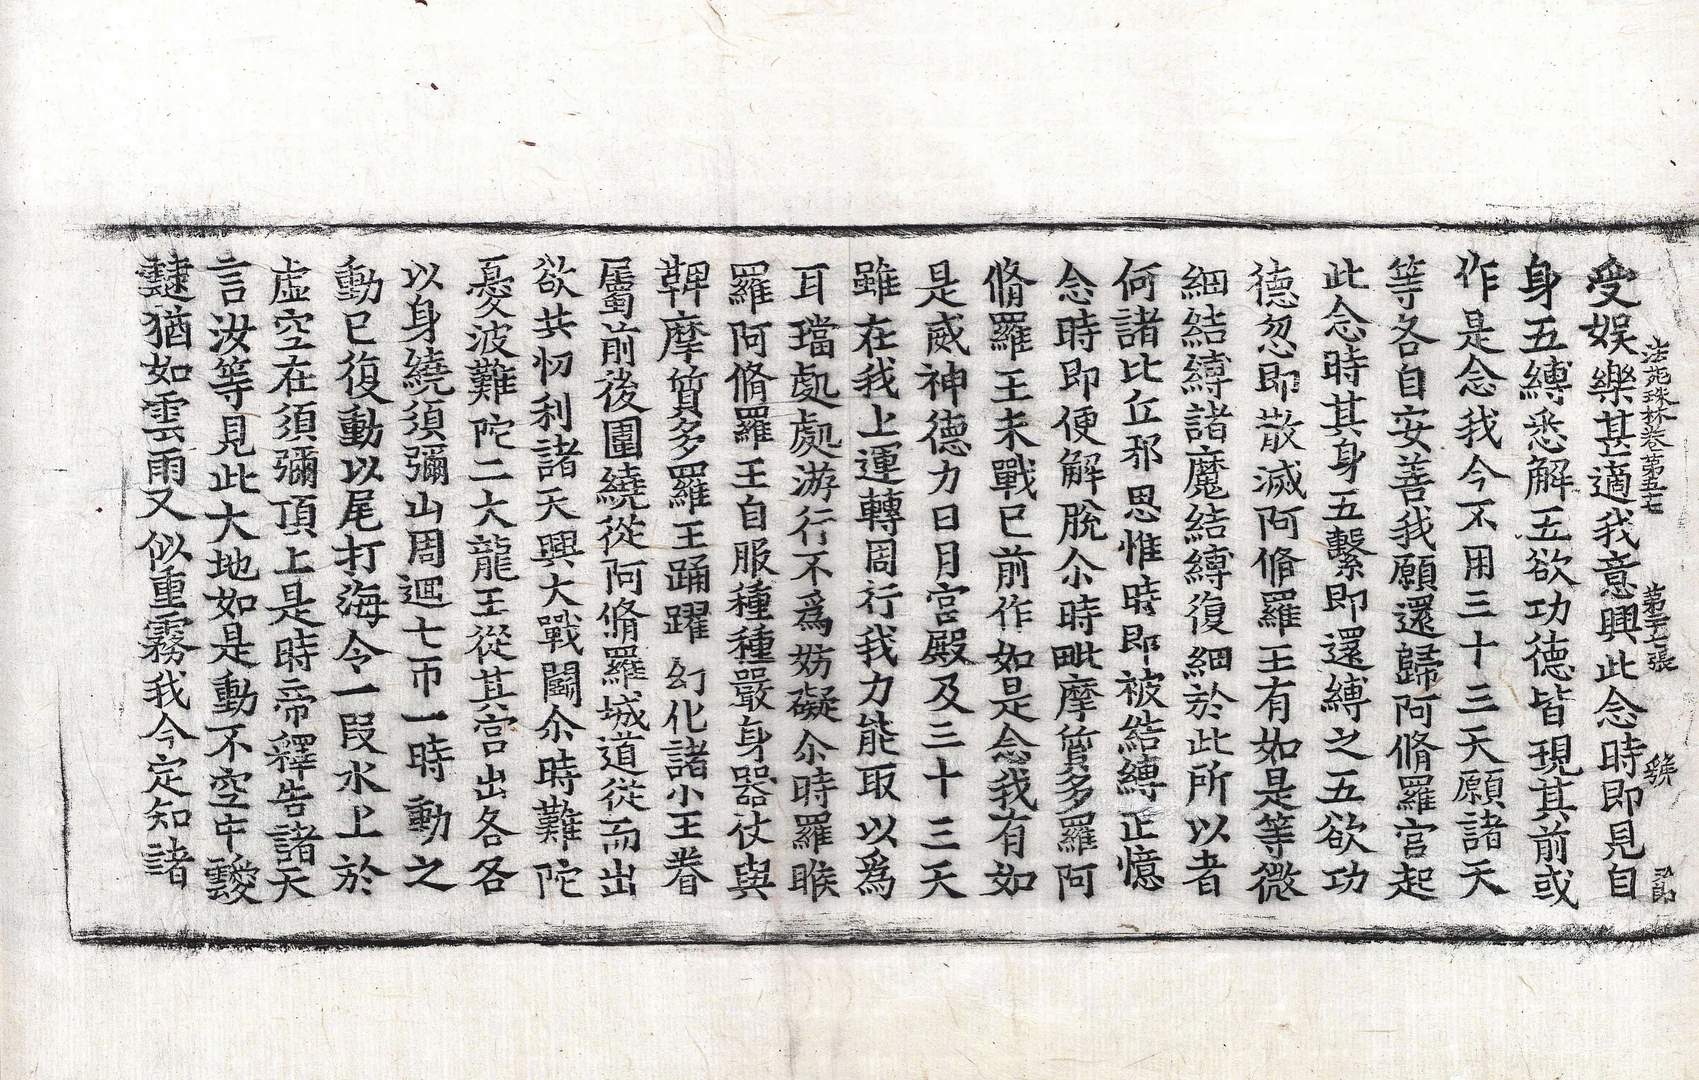 法苑珠林卷第五 第二十張 號
受娛樂甚適我意興此念時即見自
身五縛悉解五欲功德皆現其前或
作是念我今不用三十三天願諸天
等各自安善我願還歸阿脩羅宮起
此念時其身五繫即還縛之五欲功
德忽即散滅阿脩羅王有如是等微
細結縛諸魔結縛復細於此所以者
何諸比丘邪思惟時即被結縛正憶
念時即便解脫尒時毗摩質多羅阿
脩羅王未戰已前作如是念我有如
是威神德力日月宮殿及三十三天
雖在我上運轉周行我力能取以爲
耳璫處處游行不爲妨礙尒時羅睺
羅阿脩羅王自服種種嚴身器仗與
鞞摩質多羅王踊躍幻化諸小王眷
屬前後圍繞從阿脩羅城道從而出
欲共忉利諸天興大戰鬪尒時難陀
憂波難陀二大龍王從其宮出各各
以身繞須彌山周迴七帀一時動之
動已復動以尾打海令一段水上於
虛空在須彌頂上是時帝釋告諸天
言汝等見此大地如是動不空中靉
靆猶如雲雨又似重霧我今定知諸